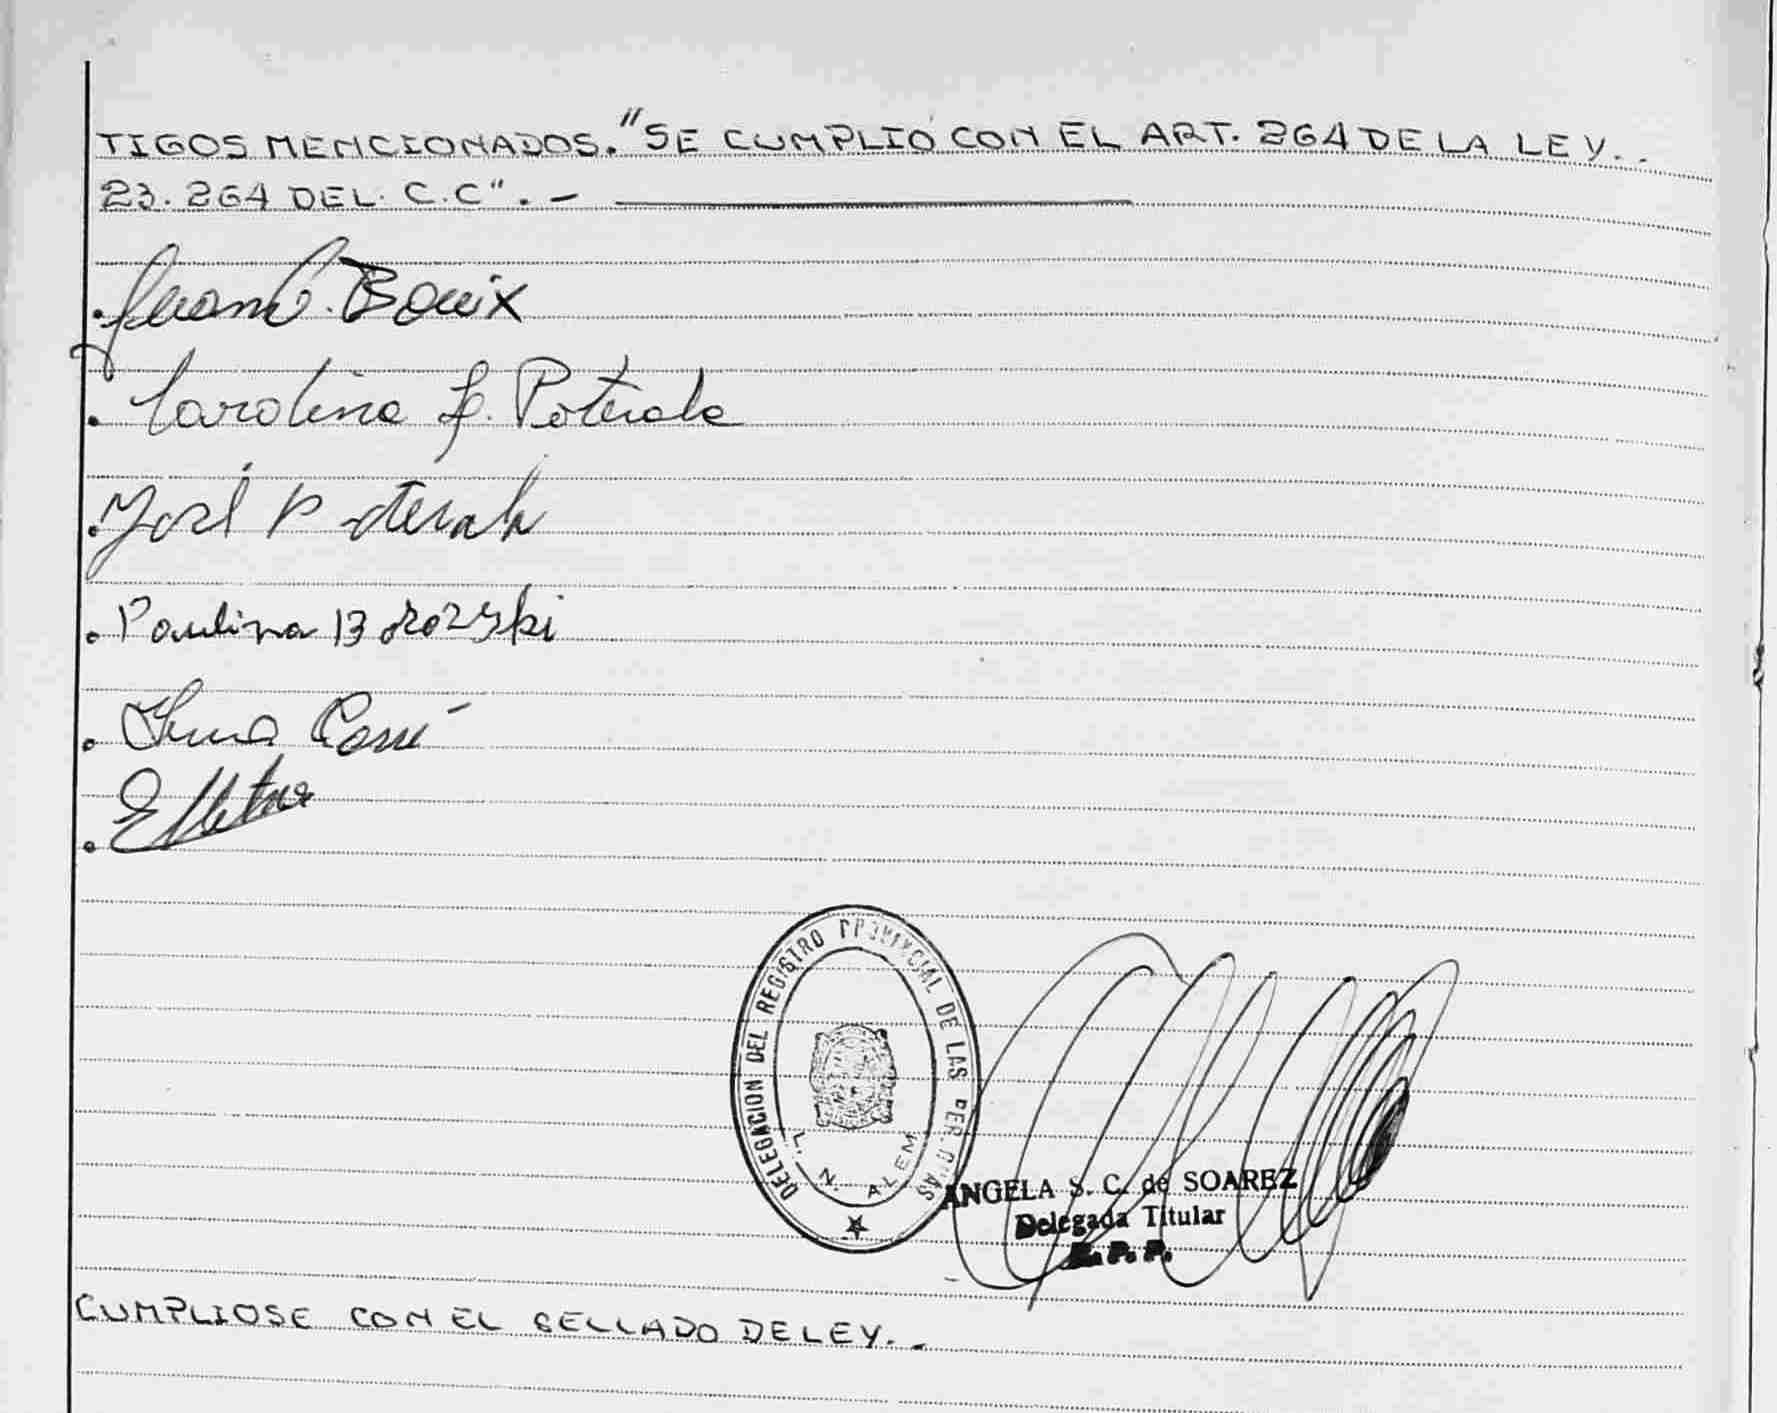 TIGOS MENCIONADOS. "SE CUMPLIÓ CON EL ART. 264 DE LA LEY..
23.264 DEL. C.C". -
Juan C. Bouix
Carolina L. Poterala
José Poterala
Paulina Brozyski
Irma
DELEGACION DEL REGISTRO PROVINCIAL DE LAS PERSONAS
L. N. ALEM
ANGELA S. C. de SOAREZ
Delegada Titular
R. P. P.
CUMPLIOSE CON EL SELLADO DE LEY. -